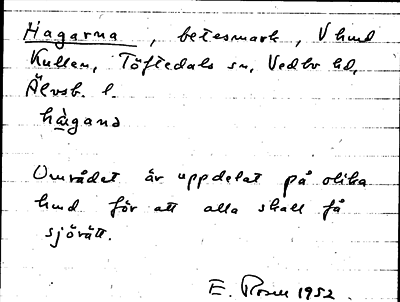 Hagarna, betesmark, V hmd
Kullen, Töftedals sn, Vedbo hd,
Älvsb. l.
hàgana
Området är uppdelat på olika
hmd för att alla skall få
sjörätt.
E. Rosen 1952